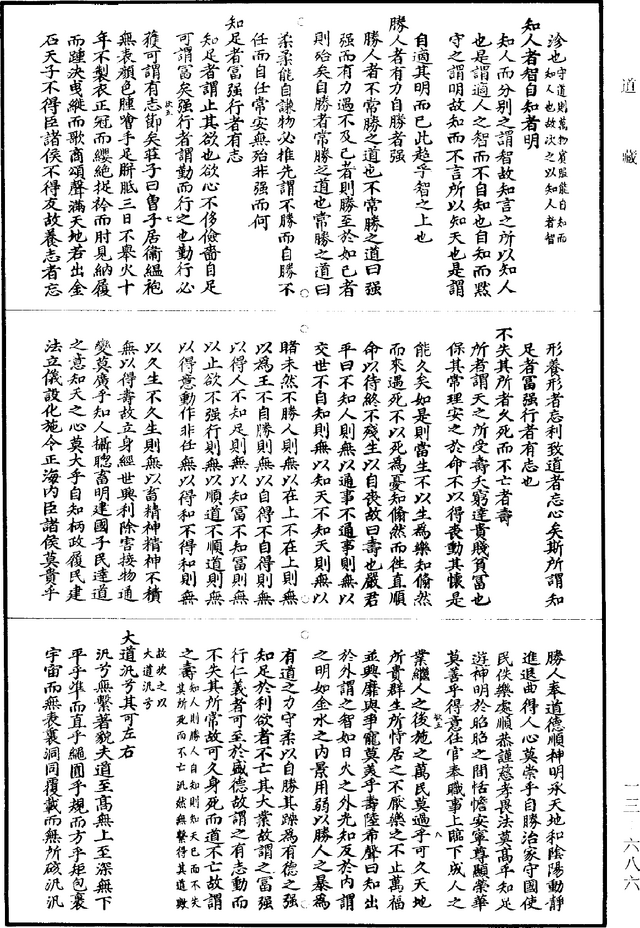 道藏
沴也守道則萬物賓服能自知而
知人也故次之以知人者智
知人者智自知者明
知人而分別之謂智故知言之所以知人
也是謂適人之智而不自知也自知而默
守之謂明故知而不言所以知天也是謂
自適其明而已此越乎智之上也
勝人者有力自勝者强
勝人者不常勝之道也不常勝之道曰强
强而有力遇不及已者則勝至於如已者
則殆矣自勝者常勝之道也常勝之道曰
柔柔能自謙物必推先謂不勝而自勝不
任而自任常安無殆非强而何
知足者富强行者有志
知足者謂止其欲也欲心不侈儉嗇自足
可謂富矣强行者謂勤而行之也勤行必
獲可謂有志節矣莊子曰曾子居衞緼袍
無表顏色腫噲手足胼胝三日不舉火十
年不製衣正冠而纓絶捉衿而肘見納履
而踵決曳縰而歌商頌聲滿天地若出金
石天子不得臣諸侯不得友故養志者忘
形養形者忘利致道者忘心矣斯所謂知
足者富强行者有志也
不失其所者久死而不亡者壽
所者謂天之所受壽夭窮達貴賤貧富也
保其常理安之於命不以得喪動其懷是
能久矣如是則當生不以生爲樂知翛然
而來遇死不以死爲憂知翛然而往直順
命以待終不殘生以自喪故曰壽也嚴君
平曰不知人則無以通事不通事則無以
交世不自知則無以知天不知天則無以
睹未然不勝人則無以在上不在上則無
以爲王不自勝則無以自得不自得則無
以得人不知足則無以知富不知富則無
以止欲不强行則無以順道不順道則無
以得意動作非任無以得和不得和則無
以久生不久生則無以畜精神精神不積
無以得壽故立身經世興利除害接物通
變莫廣乎知人攝聰畜明建國子民達道
之意知天之心莫大乎自知柄政履民建
法立儀設化施令正海内臣諸侯莫貴乎
勝人奉道德順神明承天地和陰陽動静
進退曲得人心莫崇乎自勝治家守國使
民佚樂處順恭謹慈孝畏法莫高乎知足
遊神明於昭昭之間恬憺安寧尊顯榮華
莫善乎得意任官奉職事上臨下成人之
業繼人之後施之萬民莫過乎可久天地
所貴群生所恃居之不厭樂之不止萬福
並興靡與爭寵莫美乎壽陸希聲曰知出
於外謂之智如日火之外光知反於内謂
之明如金水之内景用弱以勝人之暴爲
有道之力守柔以自勝其躁爲有德之强
知足於利欲者不亡其大業故謂之富强
行仁義者可至於盛德故謂之有志動而
不失其所常故可久身死而道不亡故謂
之壽知人則勝人自知則知天已而不失
其所死而不亡汎然無繫得其道數
故次之以
大道汎兮
大道汎兮其可左右
汎兮無繫著貌夫道至高無上至深無下
平乎準而直乎繩圓乎規而方乎矩包裹
宇宙而無表裏洞同覆載而無所礙汎汎
一三—六八六